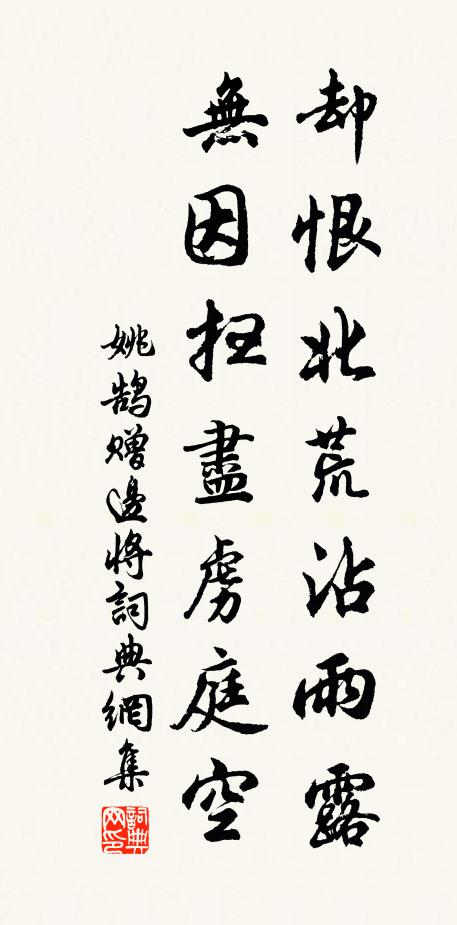 却恨北荒沾雨露
無因掃盡虜庭空
姚鵠贈邊將詞典網集
詞典网印